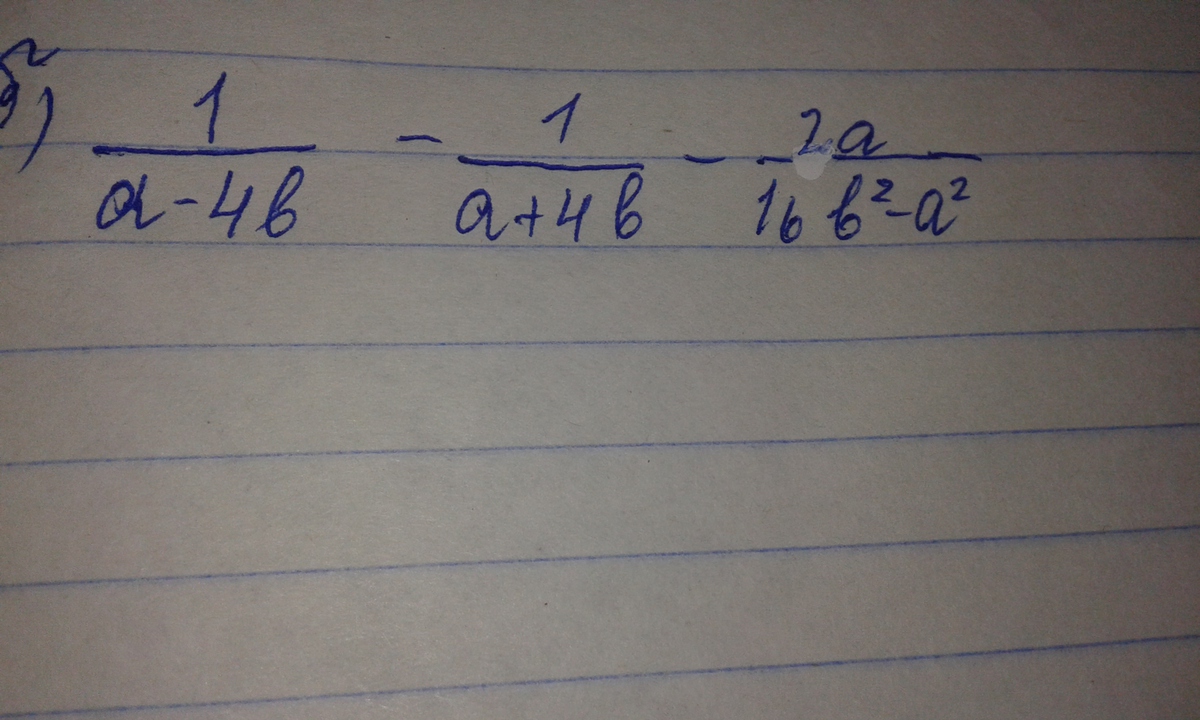 б) 1/(a-4b) - 1/(a+4b) - 2a/(16b²-a²)